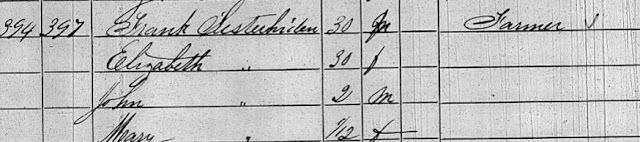 394 397 Frank 30 m Farmer
Elizabeth " 30 f
John " 2 m
Mary " 1/12 f